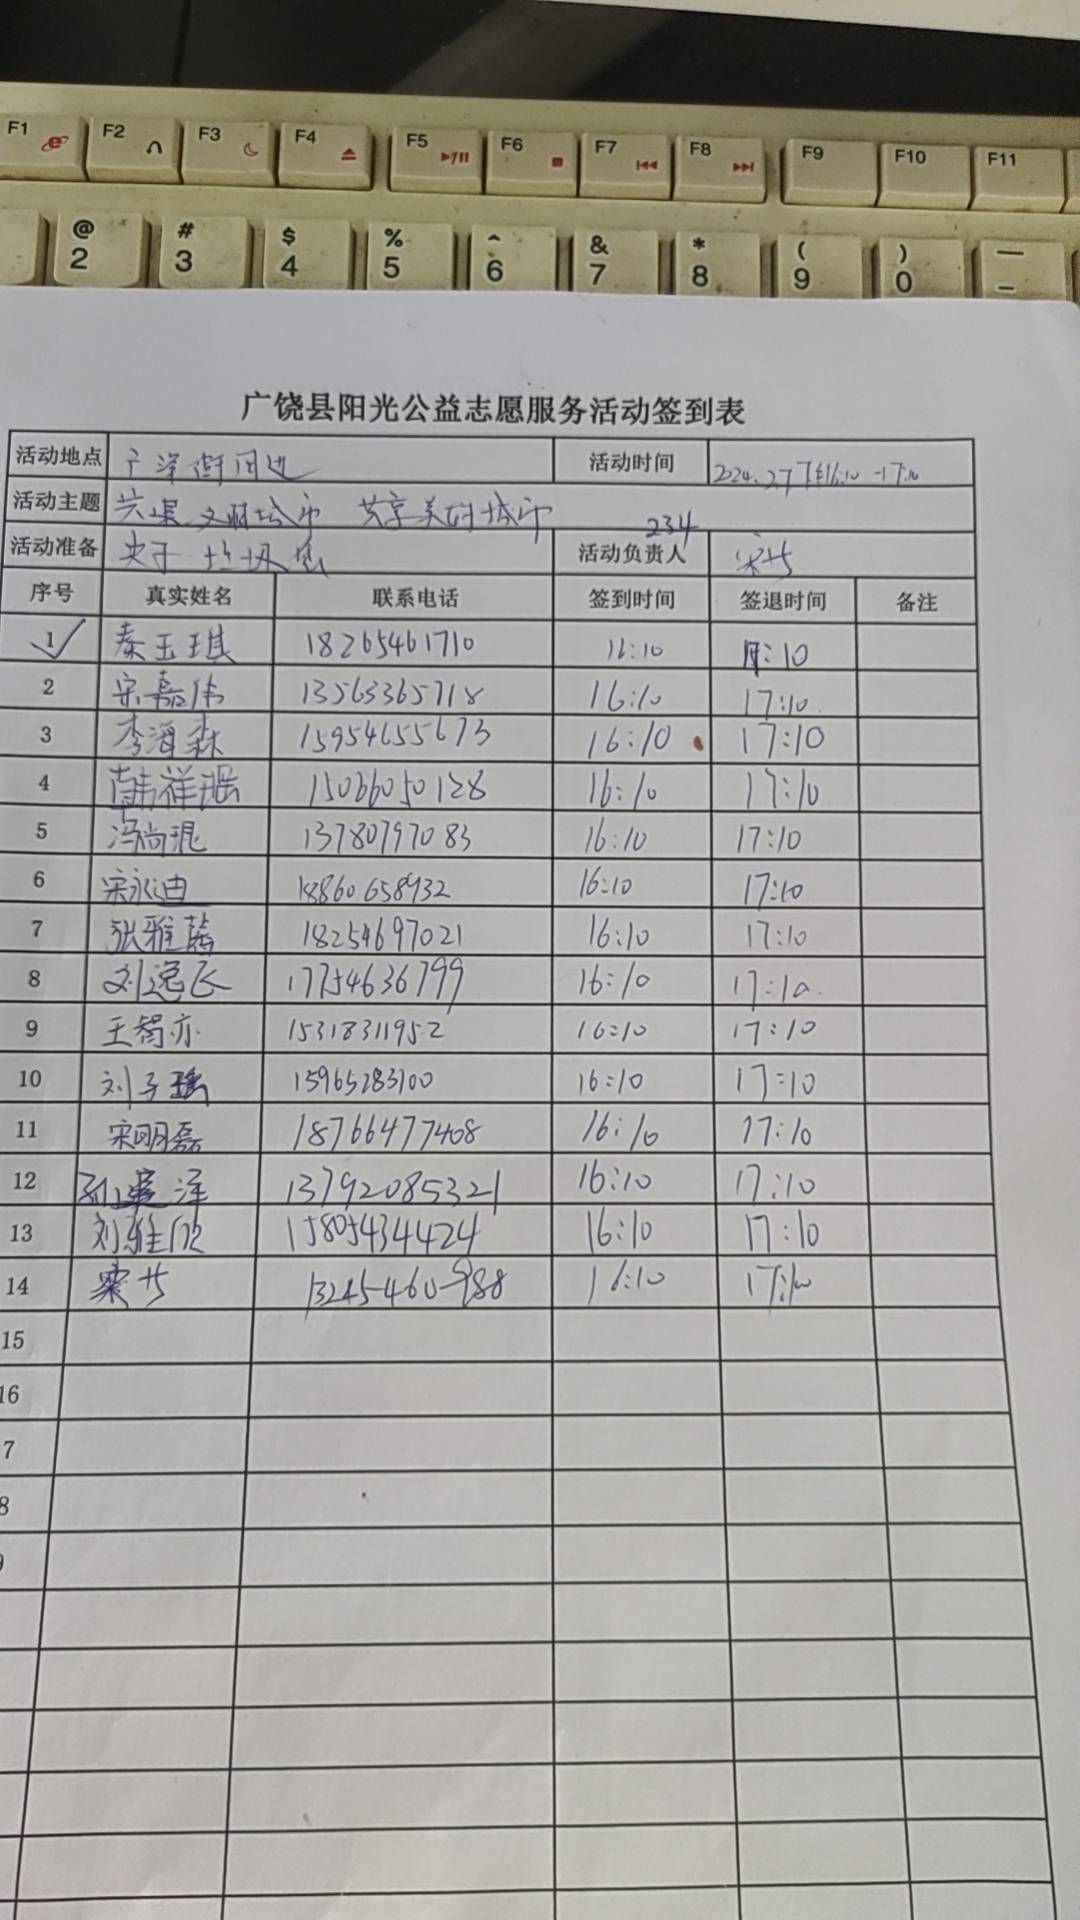 F1 F2 F3 F4 F5 F6 F7 F8 F9 F10 F11
@ # $ % ^ & * ( ) —
2 3 4 5 6 7 8 9 0 –
广饶县阳光公益志愿服务活动签到表
活动地点 街周边 活动时间 2024.2.7下午16:10-17:10
活动主题 共建文明城市 共享美好城市 234
活动准备 夹子 垃圾袋 活动负责人
序号 真实姓名 联系电话 签到时间 签退时间 备注
1 秦玉琪 18265461710 16:10 17:10
2 宋嘉伟 13563365718 16:10 17:10
3 李海森 15954655673 16:10 17:10
4 韩祥瑶 15066050128 16:10 17:10
5 冯尚琨 13780797083 16:10 17:10
6 宋永迪 18860658932 16:10 17:10
7 张雅茜 18254697021 16:10 17:10
8 刘逸飞 17754636799 16:10 17:10
9 王智亦 15318311952 16:10 17:10
10 刘子瑶 15965283100 16:10 17:10
11 宋明磊 18766477408 16:10 17:10
12 泽 13792085321 16:10 17:10
13 刘雅欣 15805434424 16:10 17:10
14 13245460988 16:10 17:10
15
16
7
8